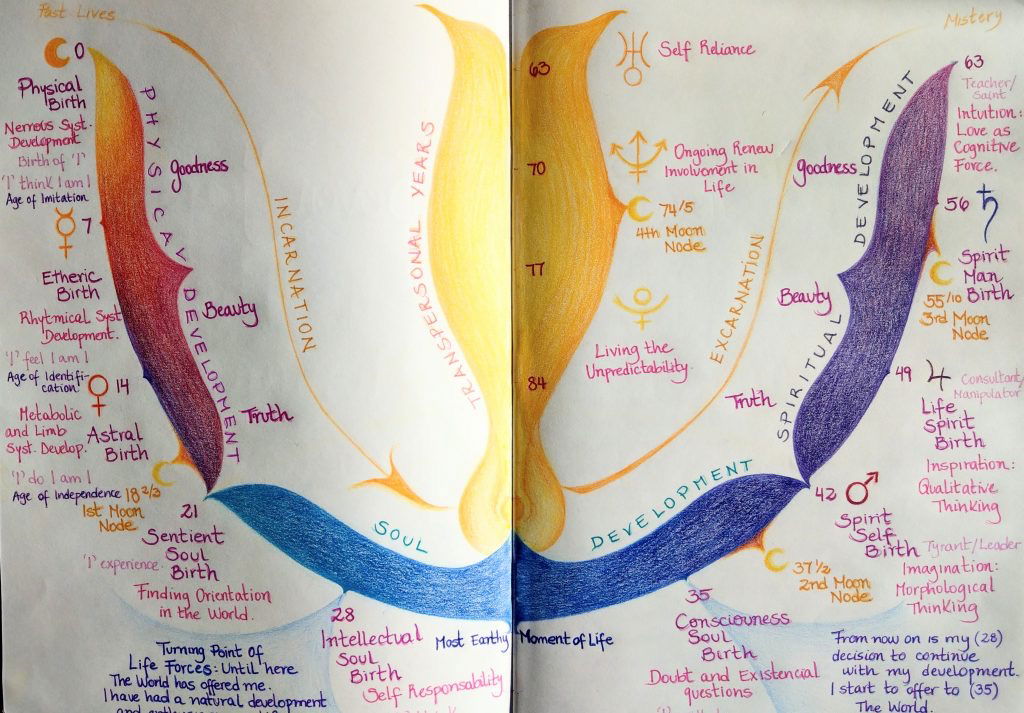 Past Lives
0
Physical
Birth
Nervous Syst.
Development
Birth of 'I'
'I' think I am I
Age of Imitation
7
Etheric
Birth
Rhytmical Syst
Development.
'I' feel I am I
Age of Identifi-
cation!
14
Metabolic
and Limb
Syst. Develop.
Astral
Birth
'I' do I am I
Age of Independence
18 2/3
1st Moon
Node
21
Sentient
Soul
Birth
'I' experience.
Finding Orientation
in the World.
PHYSICAL DEVELOPMENT
goodness
Beauty
Truth
INCARNATION
TRANSPERSONAL YEARS
SOUL
28
Intellectual
Soul
Birth
Self Responsability
Most Earthy
Turning Point of
Life Forces: Until here
The World has offered me.
I have had a natural development
Mistery
63
Self Reliance
70
Ongoing Renew
Involvement in
Life
74/5
4th Moon
Node
77
Living the
Unpredictability.
84
EXCARNATION
goodness
Beauty
Truth
SPIRITUAL DEVELOPMENT
63
Teacher/
Saint
Intuition:
Love as
Cognitive
Force.
56
Spirit
Man
Birth
55/10
3rd Moon
Node
49
Consultant/
Manipulator
Life
Spirit
Birth
Inspiration:
Qualitative
Thinking
42
Spirit
Self
Birth
Tyrant/Leader
Imagination:
Morphological
Thinking
37 1/2
2nd Moon
Node
DEVELOPMENT
Moment of Life
35
Consciousness
Soul
Birth
Doubt and Existencial
questions
From now on is my (28)
decision to continue
with my development.
I start to offer to (35)
The World.